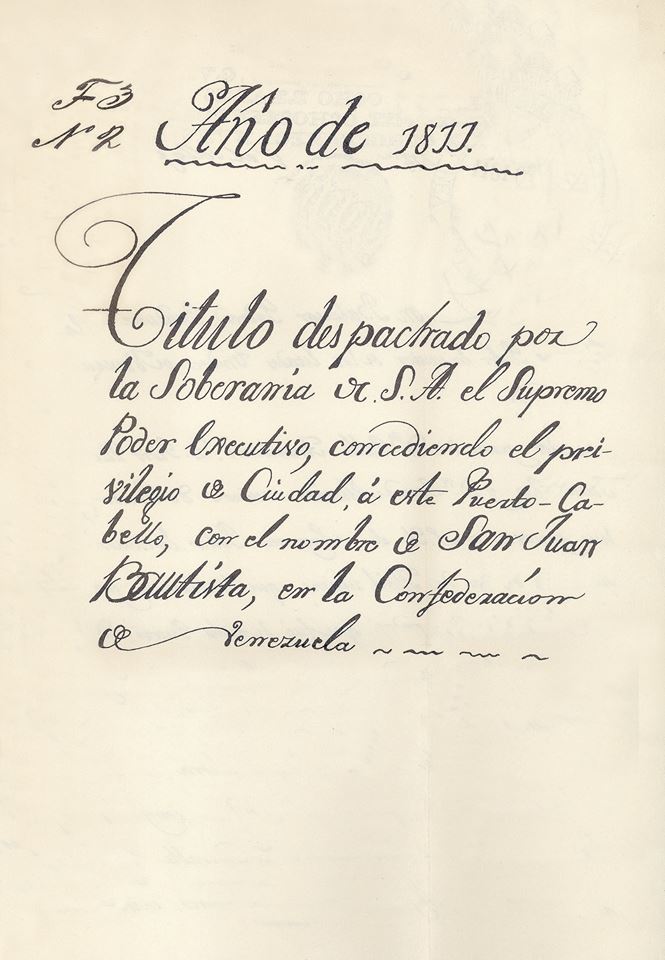 F 3
N 2 Año de 1811.
Titulo despachado por
la Soberania de S. A. el Supremo
Poder Executivo, concediendo el pri-
vilegio de Ciudad, á este Puerto-Ca-
bello, con el nombre de San Juan
Bautista, en la Confederacion
de Venezuela